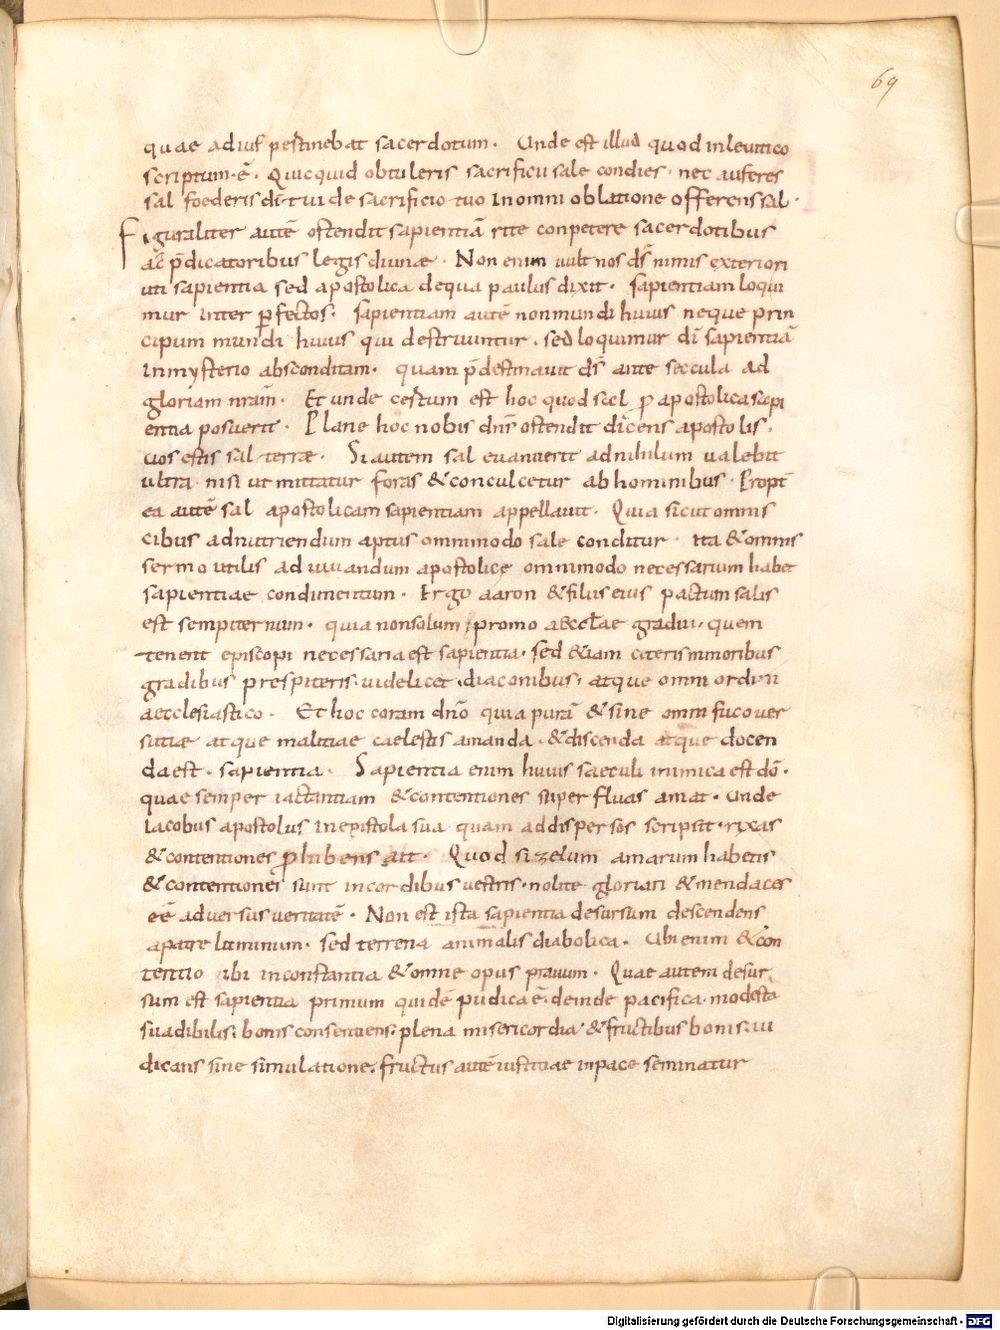 69
quae adius pertinebat sacerdotum. Unde est illud quod inleuitico
scriptum ē. Quicquid obtuleris sacrificii sale condies. nec auferes
sal foederis dī tui de sacrificio tuo In omni oblatione offerens sal.
Figuraliter autē ostendit sapientiā rite conpetere sacerdotibus
ac p̄dicatoribus legis diuinae. Non enim uult nos dī nimis exteriori
uti sapientia sed apostolica dequa paulus dixit. sapientiam loqui
mur inter perfectos. sapientiam autē non mundi huius neque prin
cipum mundi huius qui destruuntur. sed loquimur dī sapientiā
In mysterio absconditam. quam p̄destinauit dī ante secula ad
gloriam nr̄am. Et unde certum est hoc quod sal p̄ apostolica sapi
entia posuerit. Plane hoc nobis dn̄s ostendit dicens apostolis.
uos estis sal terrae. Si autem sal euanuerit adnihilum ualebit
ultra. nisi ut mittatur foras & conculcetur ab hominibus. Propt
ea autē sal apostolicam sapientiam appellauit. Quia sicut omnis
cibus adnutriendum aptus ommmodo sale conditur. ita & omnis
sermo utilis adiuuandum apostolice omnimodo necessarium habet
sapientiae condimentum. Ergo aaron & filiis eius pactum salis
est sempiternum. quia nonsolum promo aecclae gradui. quem
tenent episcopi necessaria est sapientia. sed &iam ceteris minoribus
gradibus prespiteris. uidelicet. diaconibus. atque omni ordini
aecclesiastico. Et hoc coram dn̄o quia purā & sine omni fuco uer
sutiae atque malitiae caelestis amanda. & discenda atque docen
da est. sapientia. Sapientia enim huius saeculi inimica est dō.
quae semper iactantiam & contentiones superfluas amat. Unde
Iacobus apostolus In epistola sua quam addispersos scripsit. rixas
& contentiones p̄hibens ait. Quod si zelum amarum habetis
& contentiones sunt incordibus uestris. nolite gloriari & mendaces
eē aduersus ueritatē. Non est ista sapientia desursum descendens
apatre luminum. sed terrena animalis diabolica. Ubi enim & con
tentio ibi inconstantia & omne opus prauum. Quae autem desur
sum est sapientia primum quidē pudica ē. deinde pacifica. modesta
suadibilis. bonis consentiens. plena misericordia & fructibus bonis. iu
dicans sine simulatione. fructus autē iustitiae inpace seminatur
Digitalisierung gefördert durch die Deutsche Forschungsgemeinschaft - DFG